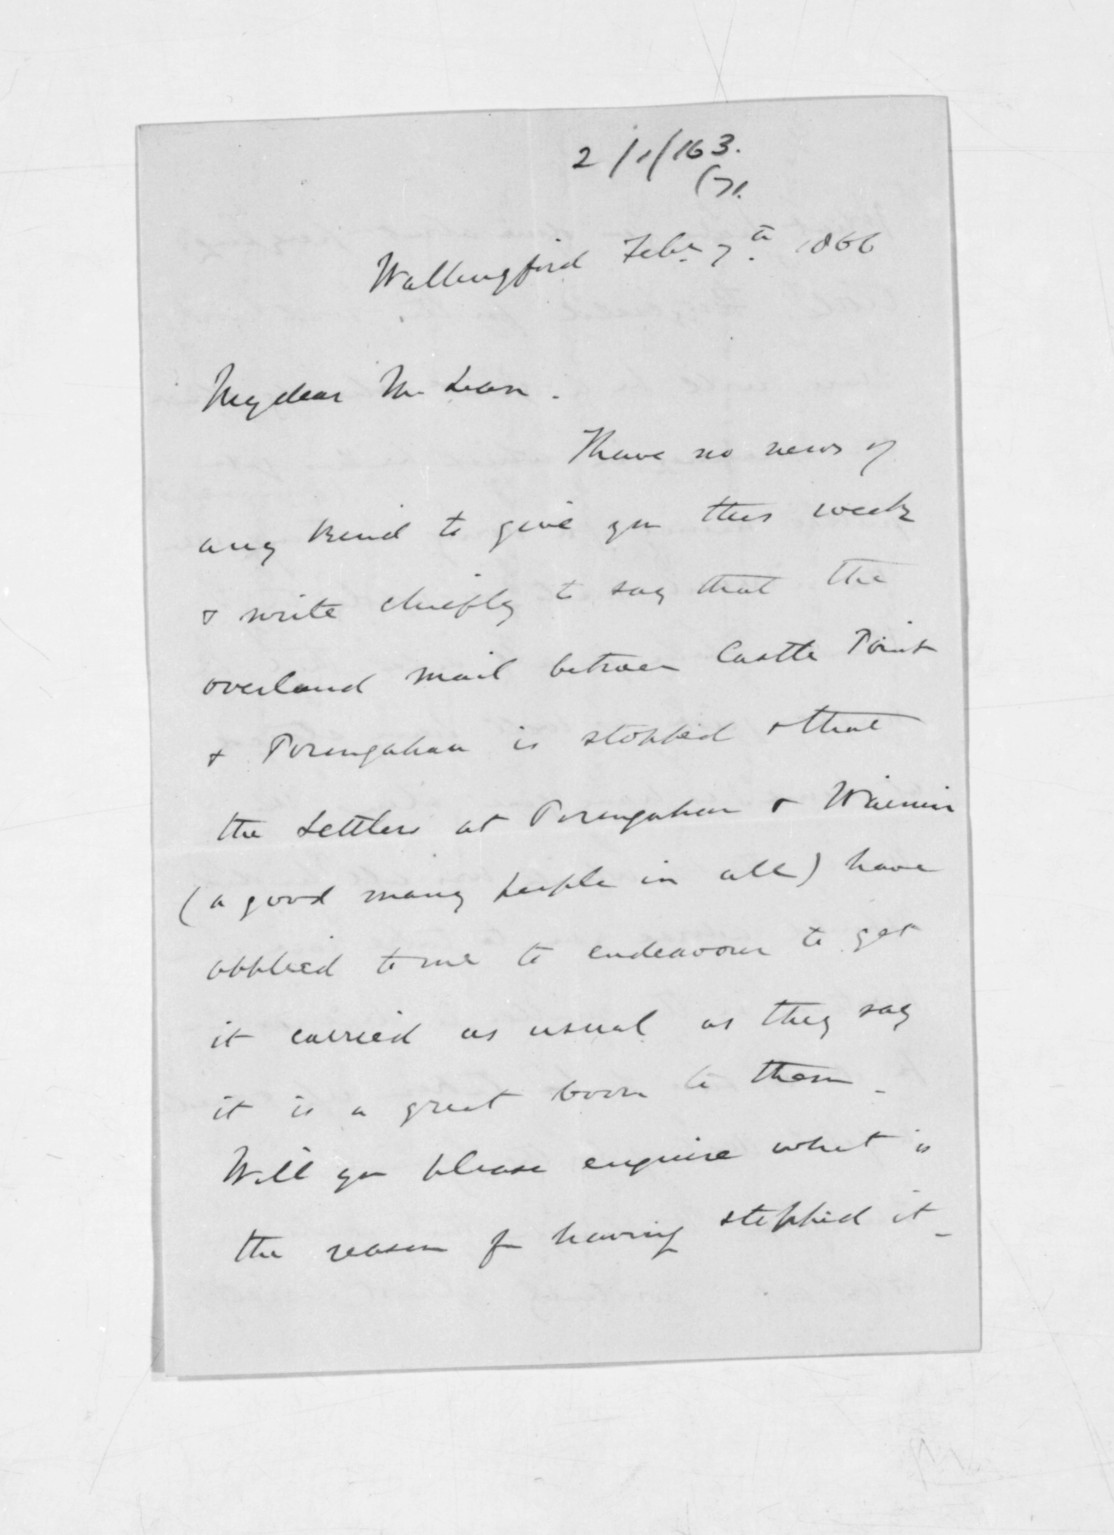 2/1/163.
(71.
Wallingford Feby 7th 1866
My dear McLean.
I have no news of
any kind to give you this week
& write chiefly to say that the
overland mail between Castle Point
& Porangahau is stopped & that
the Settlers at Porangahau & Wainui
(a good many people in all) have
applied to me to endeavour to get
it carried as usual as they say
it is a great boon to them -
Will you please enquire what is
the reason for having stopped it -